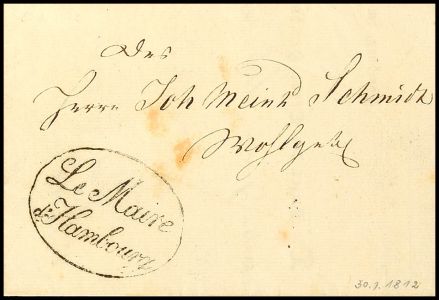 Des
Herrn Joh Meink Schmidt
Wohlgeb
Le Maire
d'Hambourg
30.1.1812